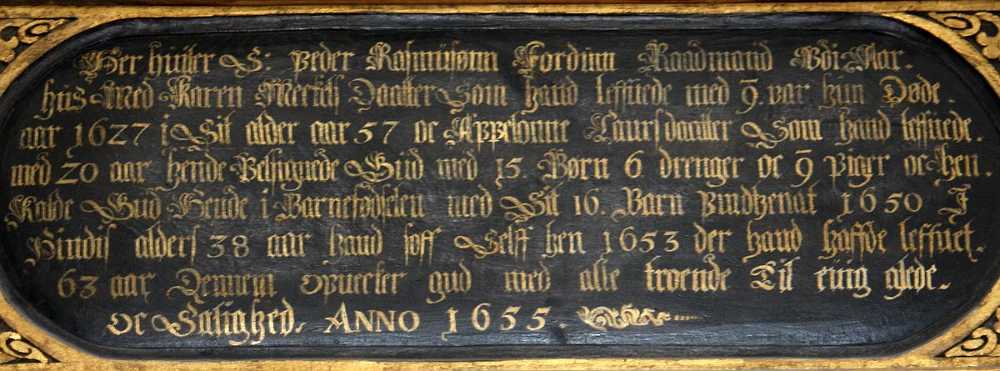 Her huiler S: peder Rasmusønn Fordum Raadmand Udi Aar-
hus Med Karen Mertis Daatter Som hand leffuede med 9. var hun Døde.
aar 1627 i Sit alder aar 57 oc Appelonne Laursdaatter Som hand leffuede.
med 20 aar hende Velsignede Gud med 15. Børn 6 drenger oc 9 piger oc hen.
Kalde Gud Hende i Barnefødselen med Sit 16. Barn Vindtzenat 1650 I
Hindis alders 38 aar hand soff Selff hen 1653 der hand haffde leffuet.
63 aar Dennem opuecker gud med alle troende Til euig glede.
oc Salighed. ANNO 1655